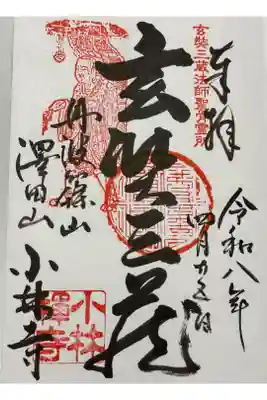 奉拝
玄奘三蔵法師
令和八年
四月
玄奘三蔵
丹波篠山
澤田山
小林寺
小林
禪寺